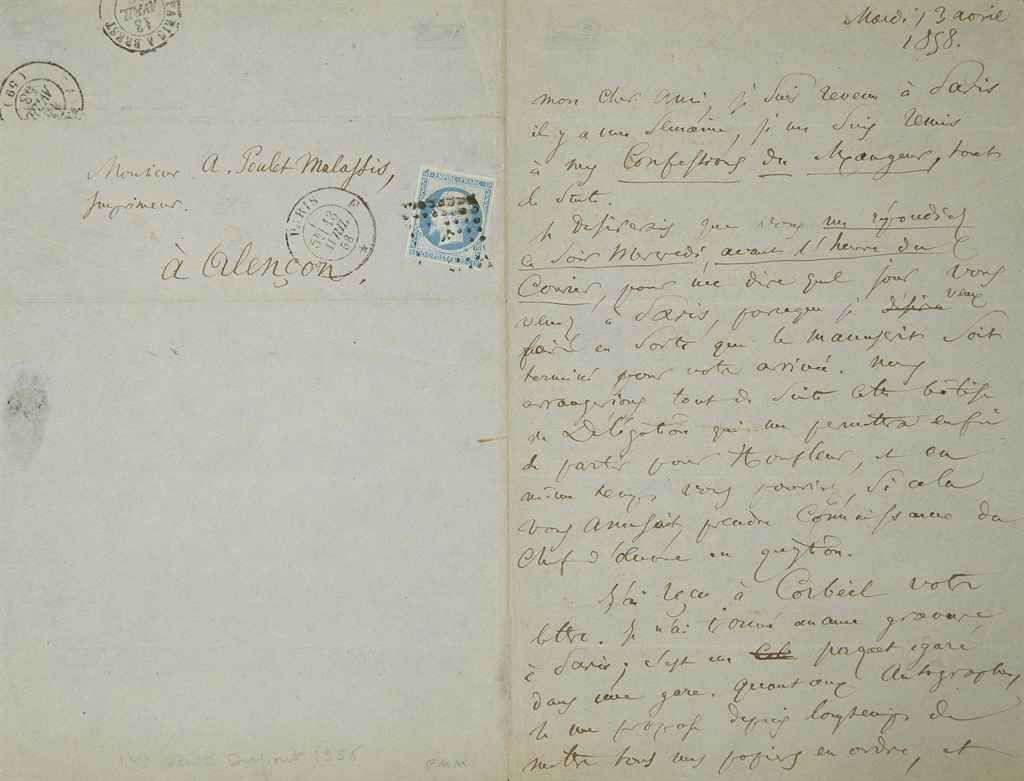 PARIS A BREST
13
AVRIL
(59)
AVRIL
58
Monsieur A. Poulet Malassis,
Imprimeur.
à Alençon,
PARIS
13
AVRIL
58
EMPIRE FRANC
Mardi 13 avril
1858.
mon cher ami, je suis revenu à Paris
il y a une semaine, je me suis remis
à mes Confessions du Mangeur, tout
de suite.
Je désirerais que vous me répondiez
ce soir Mercredi, avant l'heure du
Courier, pour me dire quel jour vous
venez à Paris, parceque je désire veux
faire en sorte que le manuscrit soit
terminé pour votre arrivée. Nous
arrangerions tout de suite cette bêtise
de Délégation qui me permettra enfin
de partir pour Honfleur, et en
même temps vous pourriez, si cela
vous amusait, prendre Connaissance du
Chef d'œuvre en question.
J'ai reçu à Corbeil votre
lettre. Je n'ai trouvé aucune gravure
à Paris; c'est un paquet égaré
dans une gare. Quant aux Autographes,
je me propose depuis longtemps de
mettre tous mes papiers en ordre, et
Vente Dupont 1956